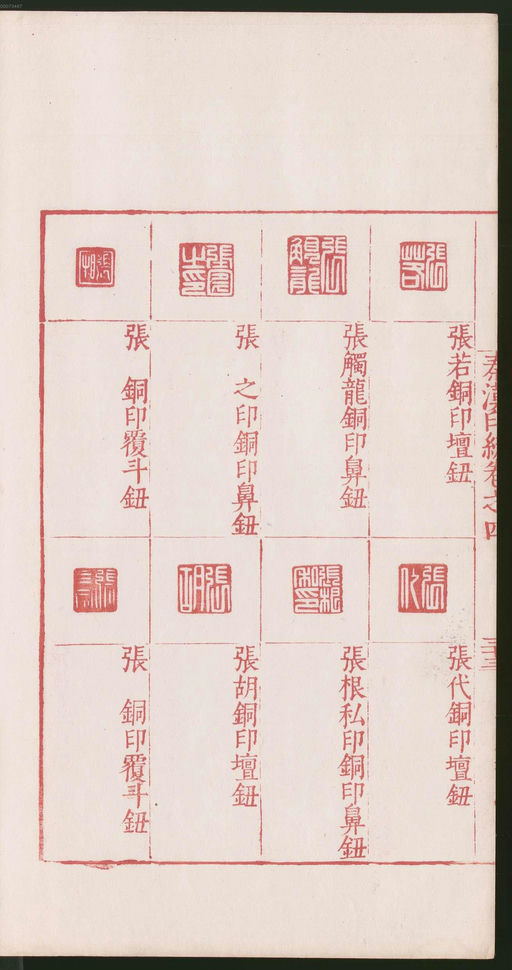 秦漢印統卷之四
三十三
張若銅印壇鈕
張觸龍銅印鼻鈕
張 之印銅印鼻鈕
張 銅印覆斗鈕
張代銅印壇鈕
張根私印銅印鼻鈕
張胡銅印壇鈕
張 銅印覆斗鈕